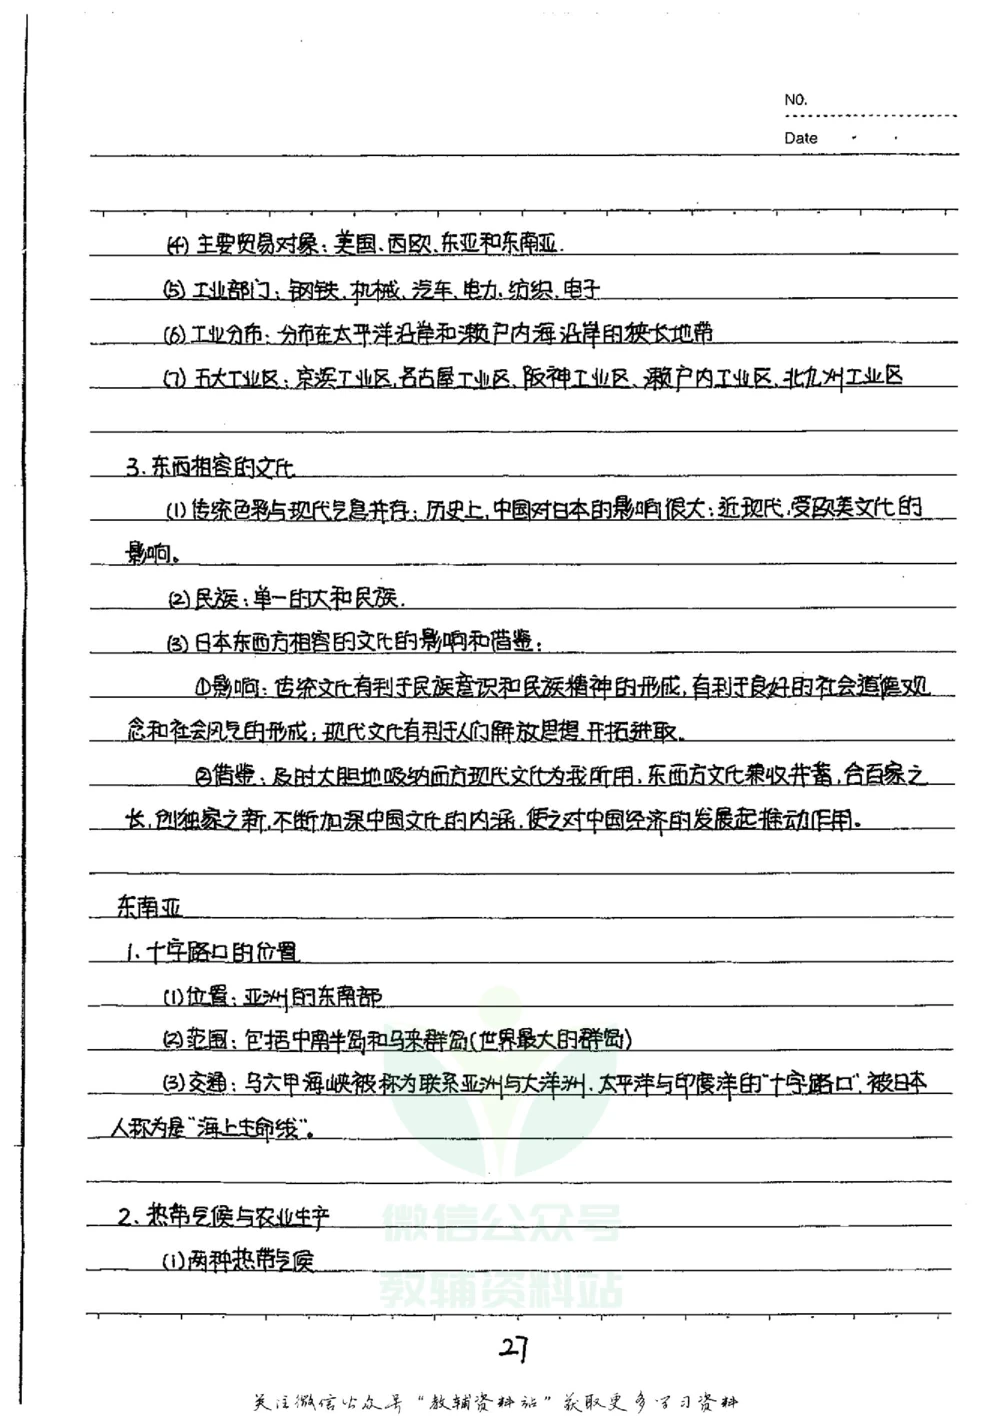 NO.
Date
(4) 主要贸易对象：美国、西欧、东亚和东南亚.
(5) 工业部门：钢铁、机械、汽车、电力、纺织、电子
(6) 工业分布：分布在太平洋沿岸和濑户内海沿岸的狭长地带
(7) 五大工业区：京滨工业区、名古屋工业区、阪神工业区、濑户内工业区、北九州工业区
3. 东西相容的文化
(1) 传统色彩与现代气息并存：历史上,中国对日本的影响很大；近现代,受欧美文化的
影响。
(2) 民族：单一的大和民族.
(3) 日本东西方相容的文化的影响和借鉴：
①影响：传统文化有利于民族意识和民族精神的形成,有利于良好的社会道德观
念和社会风气的形成；现代文化有利于人们解放思想、开拓进取。
②借鉴：及时大胆地吸纳西方现代文化为我所用,东西方文化兼收并蓄,合百家之
长,创独家之新,不断加深中国文化的内涵,使之对中国经济的发展起推动作用。
东南亚
1. 十字路口的位置
(1) 位置：亚洲的东南部
(2) 范围：包括中南半岛和马来群岛(世界最大的群岛)
(3) 交通：马六甲海峡被称为联系亚洲与大洋洲、太平洋与印度洋的"十字路口",被日本
人称为是"海上生命线"。
2. 热带气候与农业生产
(1) 两种热带气候
微信公众号
教辅资料站
27
关注微信公众号"教辅资料站"获取更多学习资料